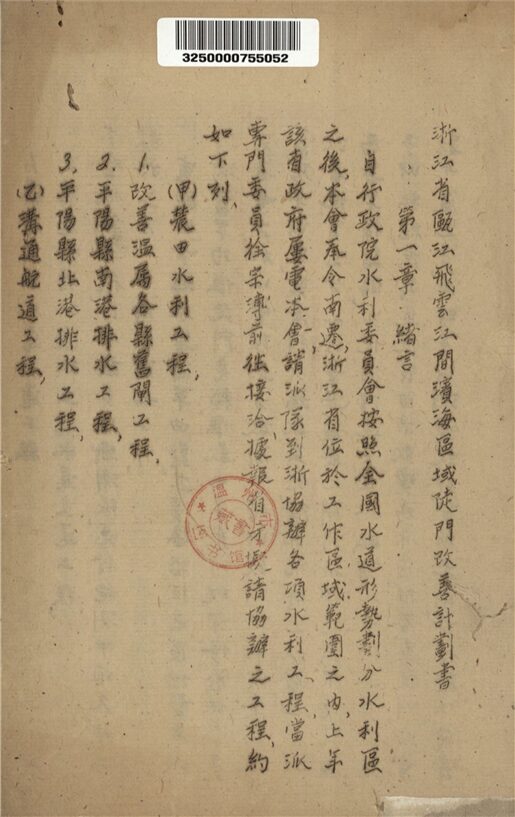 3250000755052
浙江省甌江飛雲江間濱海區域陡門改善計劃書
第一章 緒言
自行政院水利委員會按照全國水道形勢劃分水利區
之後,本會奉令南遷,浙江省位於工作區域範圍之內,上年
該省政府屢電本會請派隊到浙協辦各項水利工程,當派
專門委員徐崇溥前往接洽,據報省方擬請協辦之工程,約
如下列,
(甲)農田水利工程,
1.改善溫屬各縣舊閘工程,
2.平陽縣南港排水工程,
3.平陽縣北港排水工程,
(乙)溝通航道工程,
溫州市
圖書館